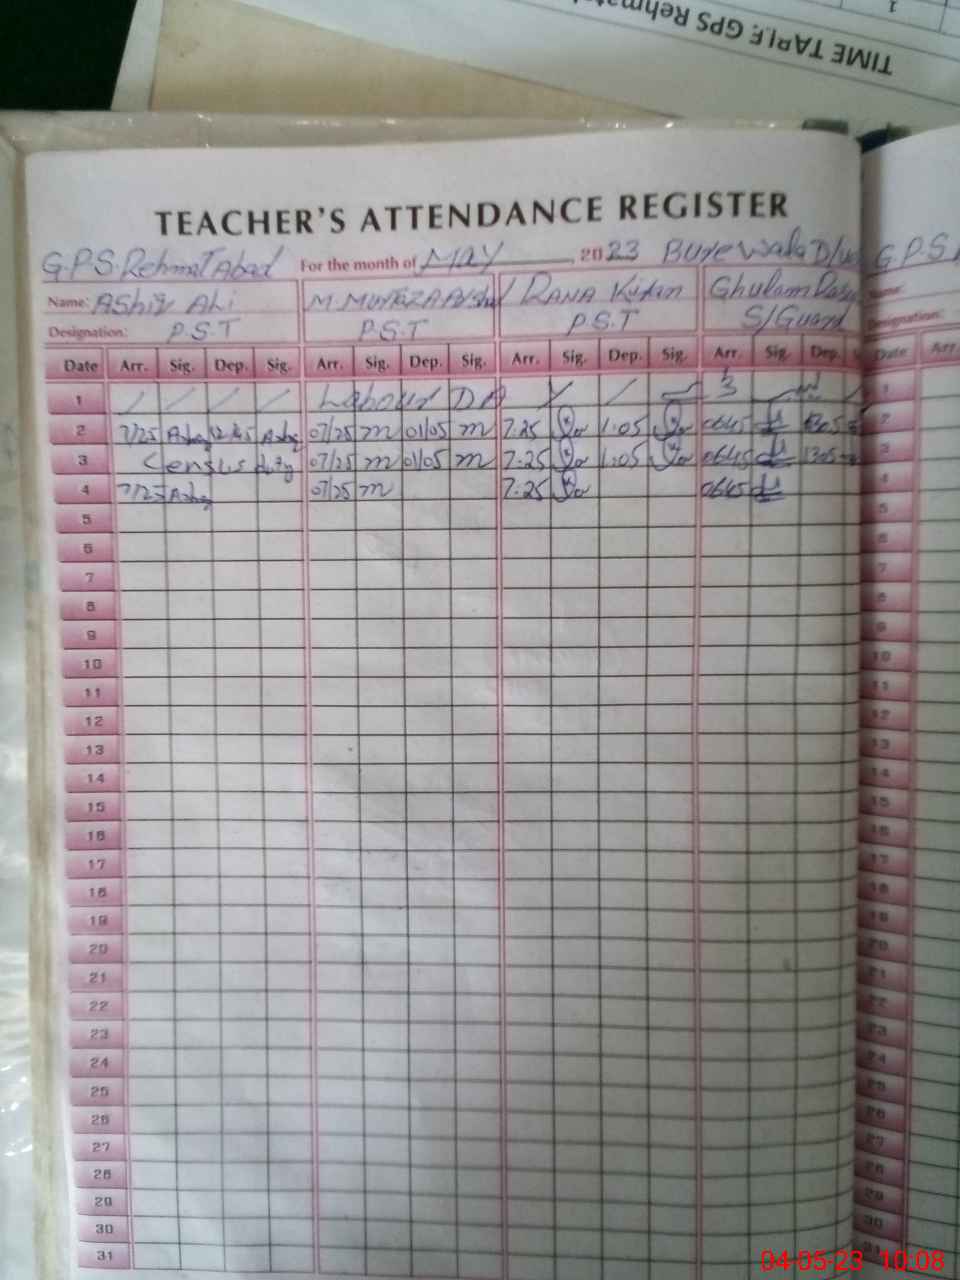 TIME TABLE GPS Rehmat
1
TEACHER'S ATTENDANCE REGISTER
G.P.S. Rehmat Abad For the month of May, 2023 Burewala
G.P.S
Name: Ashiq Ali M. Murtaza Rana Ghulam
Name:
Designation: P.S.T P.S.T P.S.T S/Guard
Designation:
Date Arr. Sig. Dep. Sig. Arr. Sig. Dep. Sig. Arr. Sig. Dep. Sig. Arr. Sig. Dep. S Date Arr.
1 / / / / Labour 1
2 7/25 07/25 m 01/05 m 7.25 1.05 0645 1305 2
3 Census duty 07/25 m 01/05 m 7.25 1.05 0645 1305 3
4 7/25 07/25 m 7.25 0645 4
5 5
6 6
7 7
8 8
9 9
10 10
11 11
12 12
13 13
14 14
15 15
16 16
17 17
18 18
19 19
20 20
21 21
22 22
23 23
24 24
25 25
26 26
27 27
28 28
29 29
30 30
31 31
04-05-23 10:08